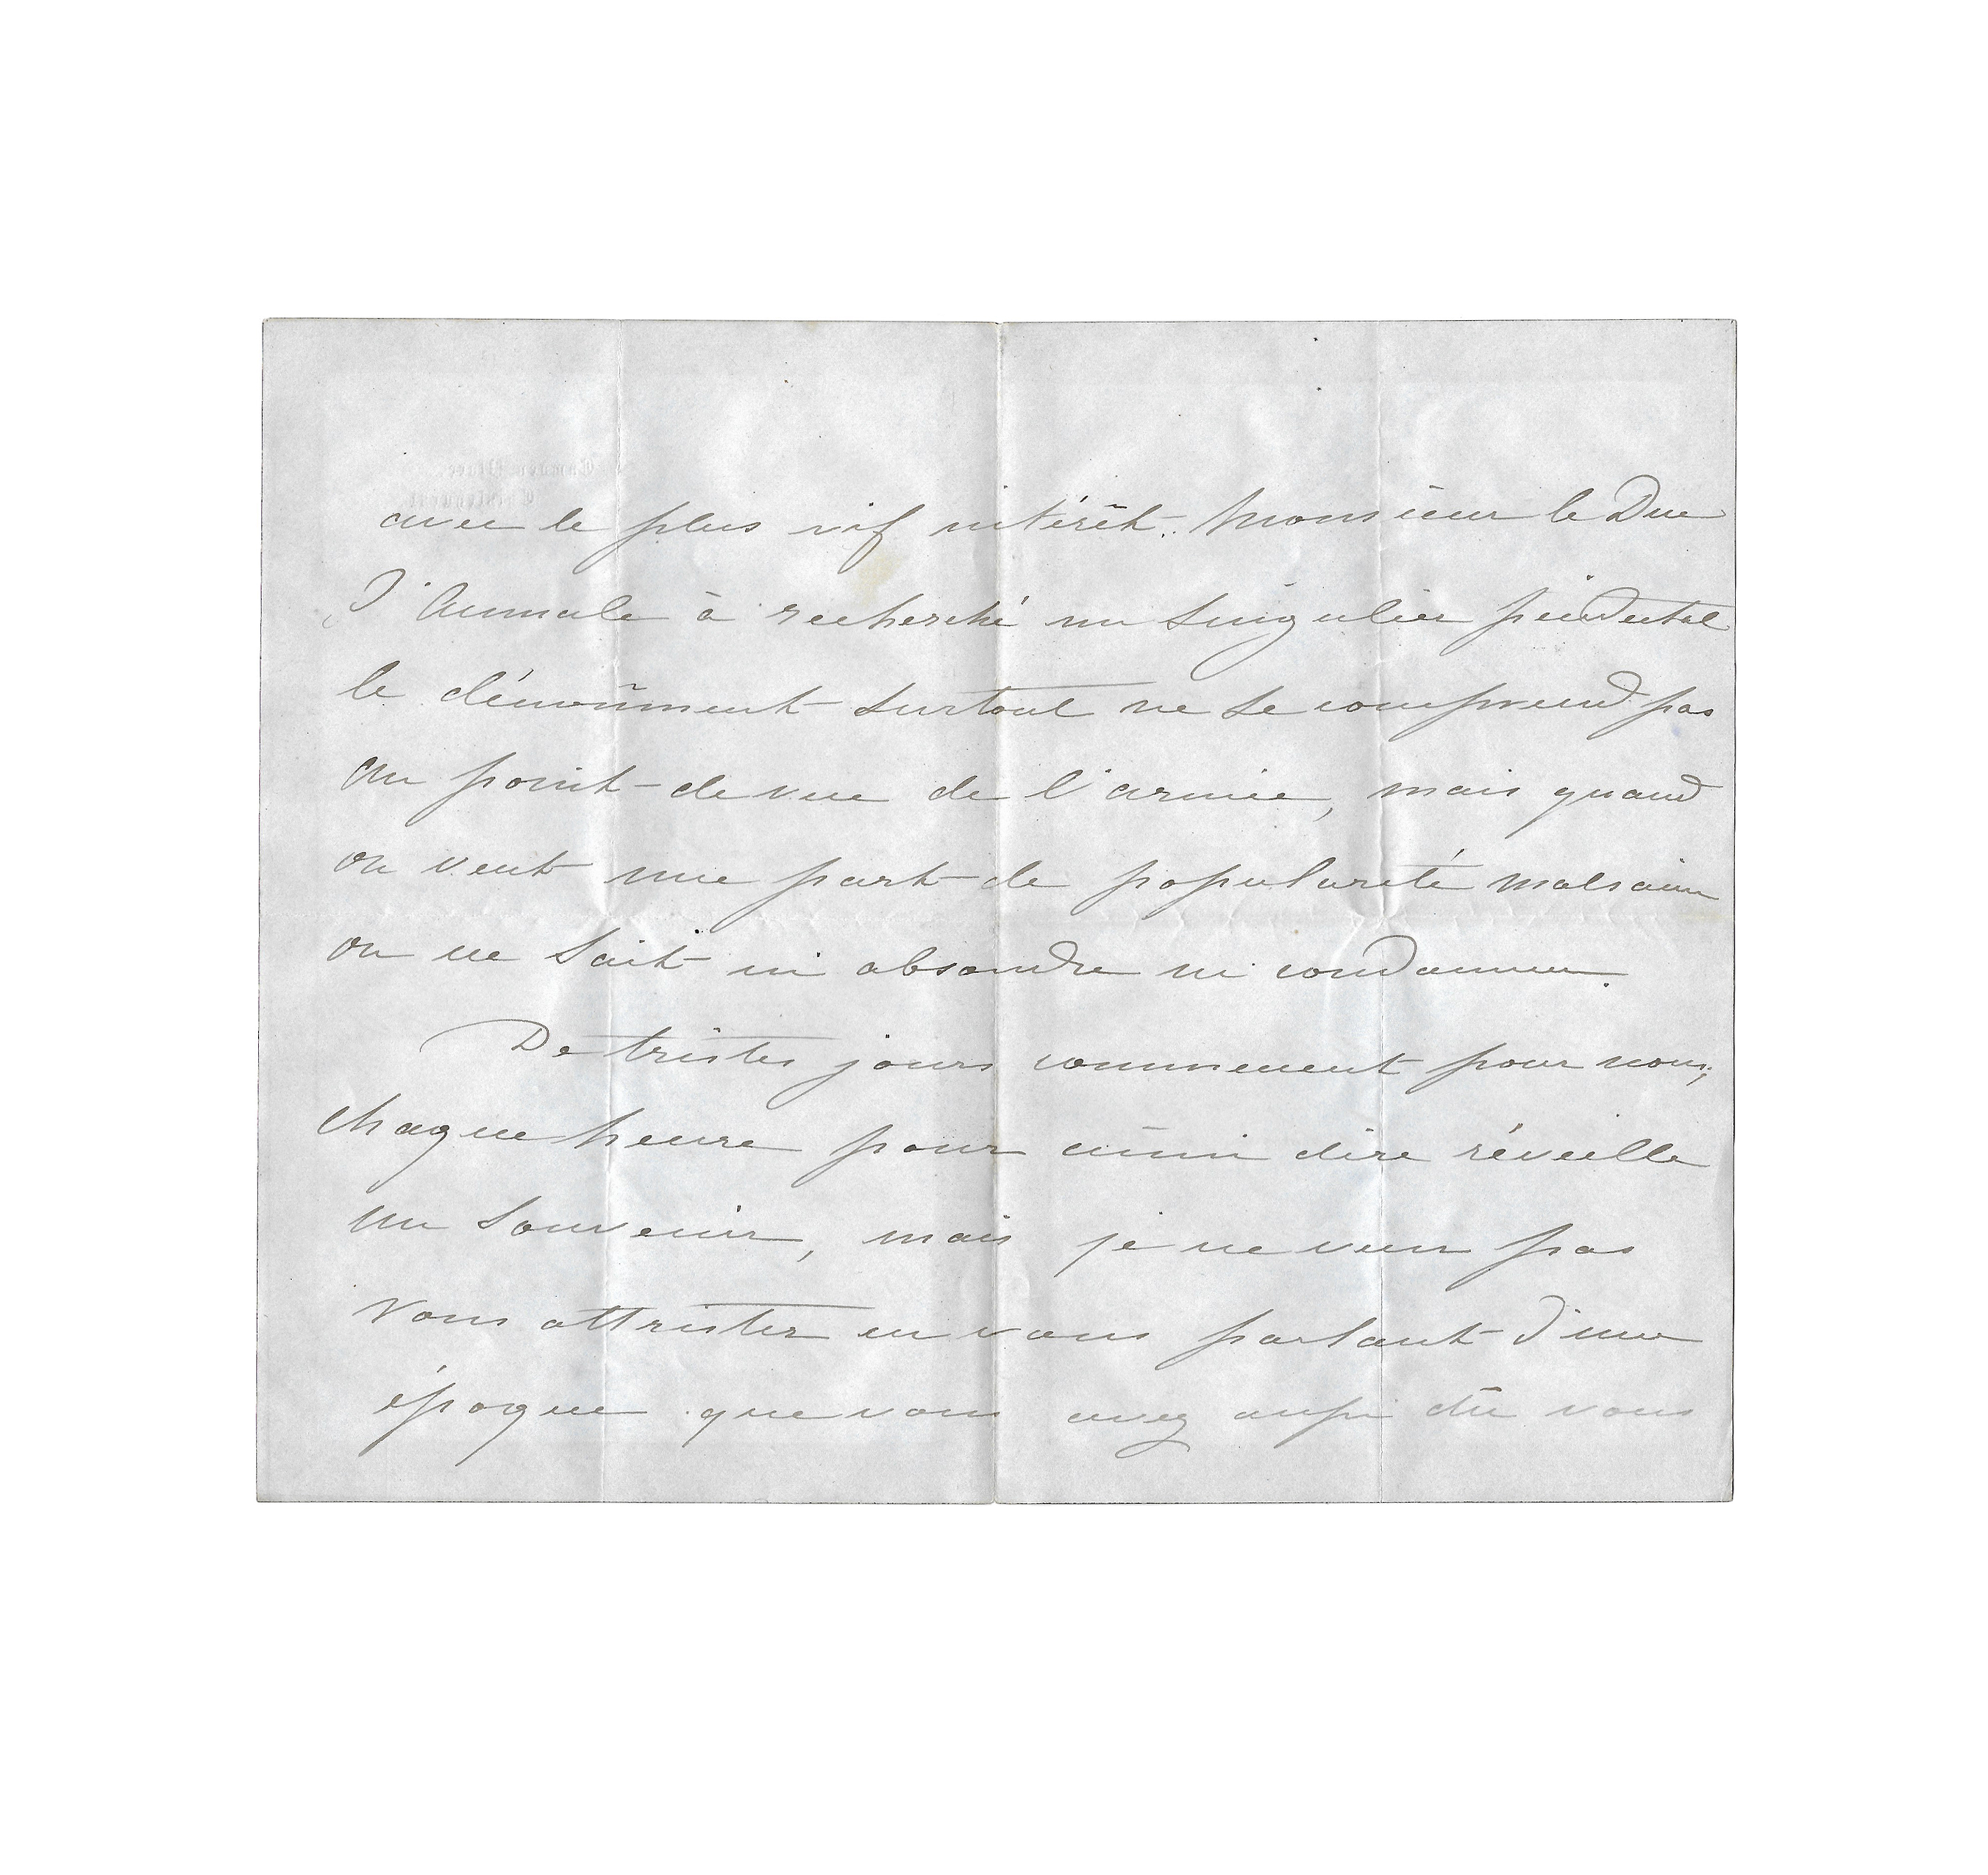 Camden Place
Chislehurst
avec le plus vif intérêt. Monsieur le Duc
d'Aumale à recherché un singulier piédestal
le dénoûment surtout ne se comprend pas
au point-de vue de l'armée, mais quand
on veut une part de popularité malsaine
on ne sait ni absoudre ni condamner.
De tristes jours commencent pour nous;
chaque heure pour ainsi dire réveille
un souvenir, mais je ne veux pas
vous attrister en vous parlant d'une
époque que vous avez aussi dû vous